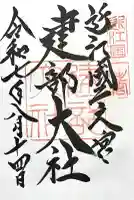 近江國一之宮
建部大社
令和七年八月十四日